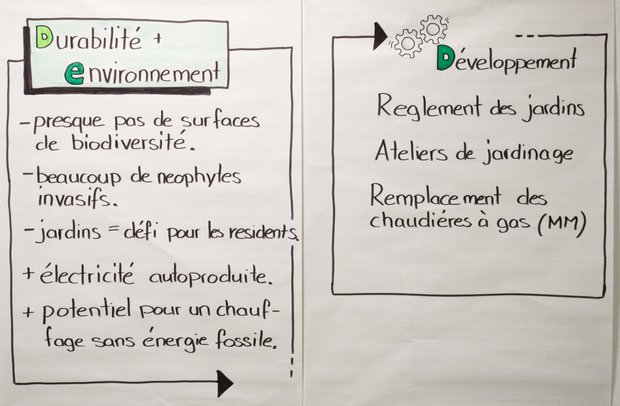 Durabilité +
environnement
-presque pas de surfaces
de biodiversité.
-beaucoup de neophytes
invasifs.
-jardins = défi pour les residents.
+ électricité autoproduite.
+ potentiel pour un chauf-
fage sans énergie fossile.
Développement
Reglement des jardins
Ateliers de jardinage
Remplacement des
chaudiéres à gas (MM)